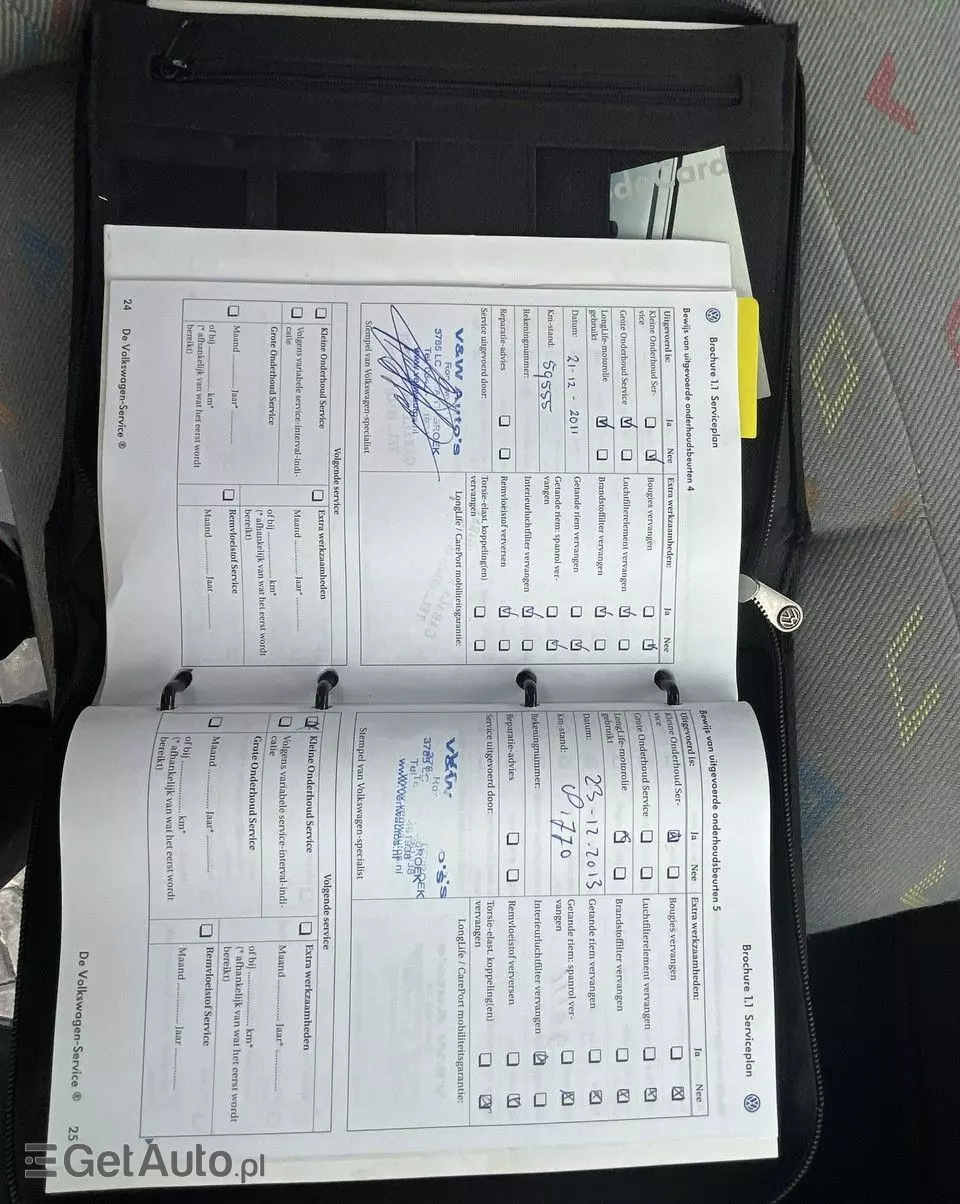 Brochure 1.1 Serviceplan
Bewijs van uitgevoerde onderhoudsbeurten 4
Uitgevoerd is: Ja Nee
Kleine Onderhoud Ser-
vice
Grote Onderhoud Service
LongLife-motorolie
gebruikt
Datum: 21-12-2011
Km-stand: 59555
Rekeningnummer:
Reparatie-advies
Service uitgevoerd door:
V&W Auto's
3785 LC
Stempel van Volkswagen-specialist
Extra werkzaamheden: Ja Nee
Bougies vervangen
Luchtfilterelement vervangen
Brandstoffilter vervangen
Getande riem vervangen
Getande riem: spanrol ver-
vangen
Interieurluchtfilter vervangen
Remvloeistof verversen
Torsie-elast. koppeling(en)
vervangen
LongLife / CarePort mobiliteitsgarantie:
Volgende service
Kleine Onderhoud Service
Volgens variabele service-interval-indi-
catie
Grote Onderhoud Service
Maand ............ Jaar* ............
of bij ............ km*
(* afhankelijk van wat het eerst wordt
bereikt)
Extra werkzaamheden
Maand ............ Jaar* ............
of bij ............ km*
(* afhankelijk van wat het eerst wordt
bereikt)
Remvloeistof Service
Maand ............ Jaar ............
24 De Volkswagen-Service ®
Brochure 1.1 Serviceplan
Bewijs van uitgevoerde onderhoudsbeurten 5
Uitgevoerd is: Ja Nee
Kleine Onderhoud Ser-
vice
Grote Onderhoud Service
LongLife-motorolie
gebruikt
Datum: 23-12-2013
Km-stand: 81770
Rekeningnummer:
Reparatie-advies
Service uitgevoerd door:
Stempel van Volkswagen-specialist
Extra werkzaamheden: Ja Nee
Bougies vervangen
Luchtfilterelement vervangen
Brandstoffilter vervangen
Getande riem vervangen
Getande riem: spanrol ver-
vangen
Interieurluchtfilter vervangen
Remvloeistof verversen
Torsie-elast. koppeling(en)
vervangen
LongLife / CarePort mobiliteitsgarantie:
Volgende service
Kleine Onderhoud Service
Volgens variabele service-interval-indi-
catie
Grote Onderhoud Service
Maand ............ Jaar* ............
of bij ............ km*
(* afhankelijk van wat het eerst wordt
bereikt)
Extra werkzaamheden
Maand ............ Jaar* ............
of bij ............ km*
(* afhankelijk van wat het eerst wordt
bereikt)
Remvloeistof Service
Maand ............ Jaar ............
De Volkswagen-Service ® 25
GetAuto.pl